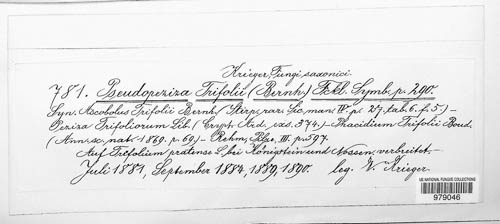 Krieger, Fungi saxonici.
781. Pseudopeziza Trifolii (Bernh.) Fckl. Symb. p. 290.
Syn. Ascobolus Trifolii Bernh. (Stirp. rar. Sic. man. IV. p. 27, tab. 6. f. 5.) —
Peziza Trifoliorum Lib. (Crypt. Ard. exs. 374.) — Phacidium Trifolii Boud.
(Ann. sc. nat. 1869. p. 69.) — Rehm, III. p. 597.
Auf Trifolium pratense L. bei Königstein und Nossen, verbreitet. —
Juli 1881, September 1884, 1889, 1890. leg. W. Krieger.
US NATIONAL FUNGUS COLLECTIONS
979046